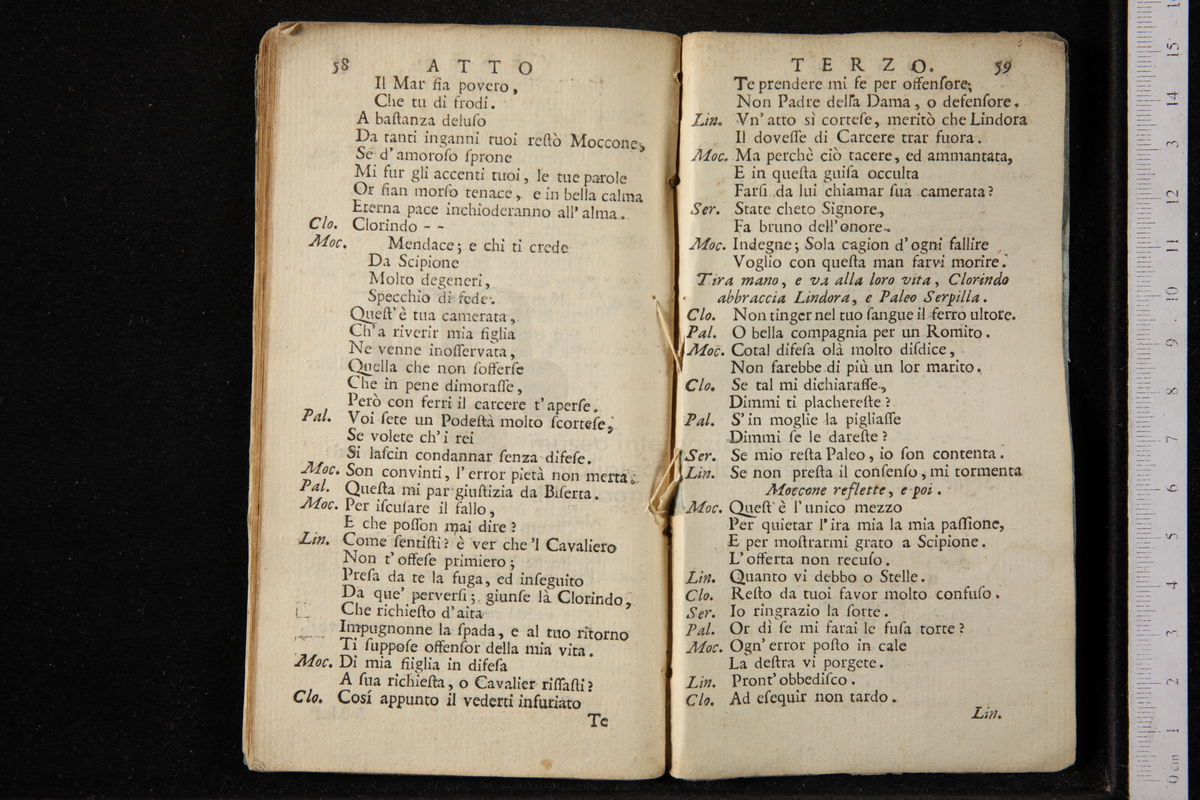 58 ATTO
Il Mar ſia povero,
Che tu di frodi.
A baſtanza deluſo
Da tanti inganni tuoi reſtò Moccone,
Se d'amoroſo ſprone
Mi fur gli accenti tuoi, le tue parole
Or ſian morſo tenace, e in bella calma
Eterna pace inchioderanno all'alma.
Clo. Clorindo - -
Moc. Mendace; e chi ti crede
Da Scipione
Molto degeneri,
Specchio di fede.
Queſt'è tua camerata,
Ch'a riverir mia figlia
Ne venne inoſſervata,
Quella che non ſofferſe
Che in pene dimoraſſe,
Però con ferri il carcere t'aperſe.
Pal. Voi ſete un Podeſtà molto ſcorteſe,
Se volete ch'i rei
Si laſcin condannar ſenza difeſe.
Moc. Son convinti, l'error pietà non merta.
Pal. Queſta mi par giuſtizia da Biſerta.
Moc. Per iſcuſare il fallo,
E che poſſon mai dire?
Lin. Come ſentiſti? è ver che'l Cavaliero
Non t'offeſe primiero;
Preſa da te la fuga, ed inſeguito
Da que' perverſi; giunſe là Clorindo,
Che richieſto d'aita
Impugnonne la ſpada, e al tuo ritorno
Ti ſuppoſe offenſor della mia vita.
Moc. Di mia fiiglia in difeſa
A ſua richieſta, o Cavalier riſſaſti?
Clo. Cosí appunto il vederti infuriato
Te
TERZO. 59
Te prendere mi fe per offenſore,
Non Padre della Dama, o defenſore.
Lin. Vn'atto sì corteſe, meritò che Lindora
Il doveſſe di Carcere trar fuora.
Moc. Ma perchè ciò tacere, ed ammantata,
E in queſta guiſa occulta
Farſi da lui chiamar ſua camerata?
Ser. State cheto Signore,
Fa bruno dell'onore.
Moc. Indegne; Sola cagion d'ogni fallire
Voglio con queſta man farvi morire.
Tira mano, e va alla loro vita, Clorindo
abbraccia Lindora, e Paleo Serpilla.
Clo. Non tinger nel tuo ſangue il ferro ultore.
Pal. O bella compagnia per un Romito.
Moc. Cotal difeſa olà molto diſdice,
Non farebbe di più un lor marito.
Clo. Se tal mi dichiaraſſe,
Dimmi ti plachereſte?
Pal. S'in moglie la pigliaſſe
Dimmi ſe le dareſte?
Ser. Se mio reſta Paleo, io ſon contenta.
Lin. Se non preſta il conſenſo, mi tormenta
Moccone reflette, e poi.
Moc. Queſt'è l'unico mezzo
Per quietar l'ira mia la mia paſſione,
E per moſtrarmi grato a Scipione.
L'offerta non recuſo.
Lin. Quanto vi debbo o Stelle.
Clo. Reſto da tuoi favor molto confuſo.
Ser. Io ringrazio la ſorte.
Pal. Or di ſe mi farai le fuſa torte?
Moc. Ogn'error poſto in cale
La deſtra vi porgete.
Lin. Pront'obbediſco.
Clo. Ad eſequir non tardo.
Lin.